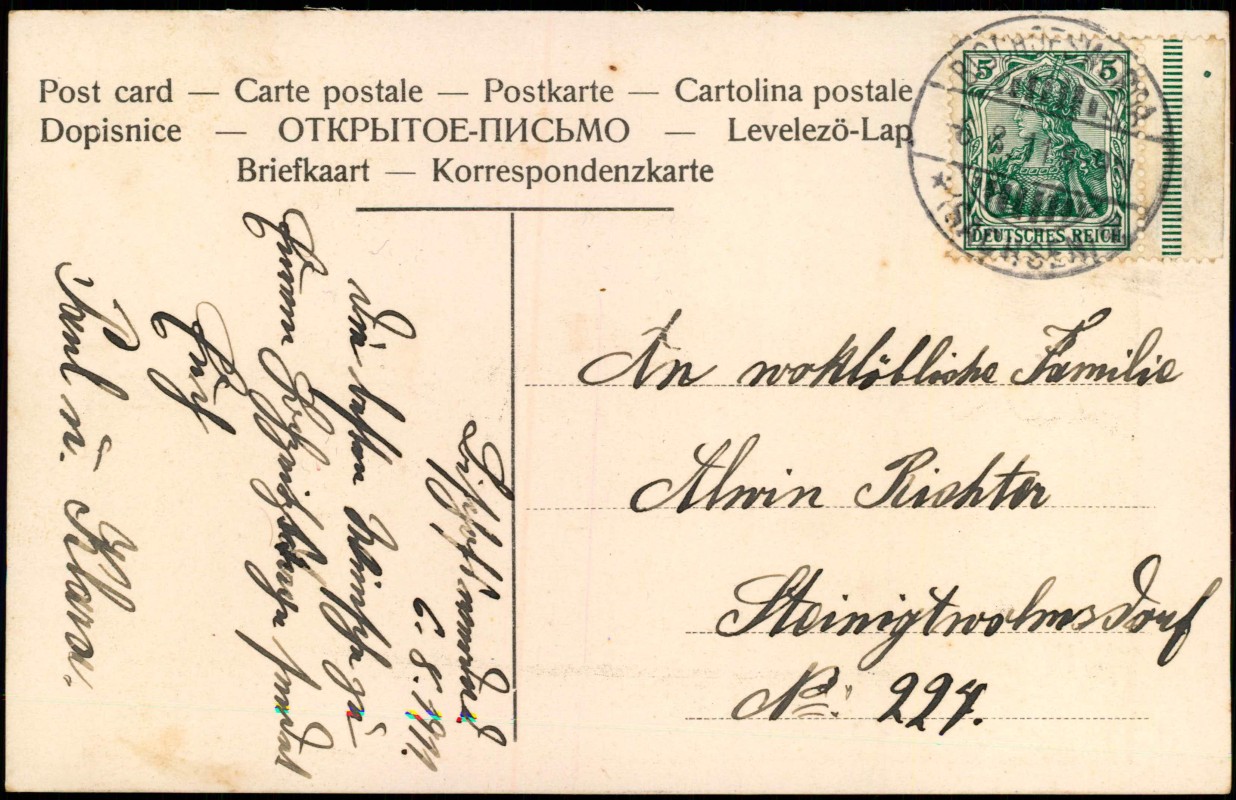 Post card — Carte postale — Postkarte — Cartolina postale
Dopisnice — ОТКРЫТОЕ-ПИСЬМО — Levelezö-Lap
Briefkaart — Korrespondenzkarte
5 5
DEUTSCHES REICH
(SACHSEN)
An wohllöbliche Familie
Alwin Richter
Steinigtwolmsdorf
No. 224.
6. 8. 1911.
Die besten Wünsche zu
Eurem Hochzeitstage sendet
Euch
Paul u. Klara.